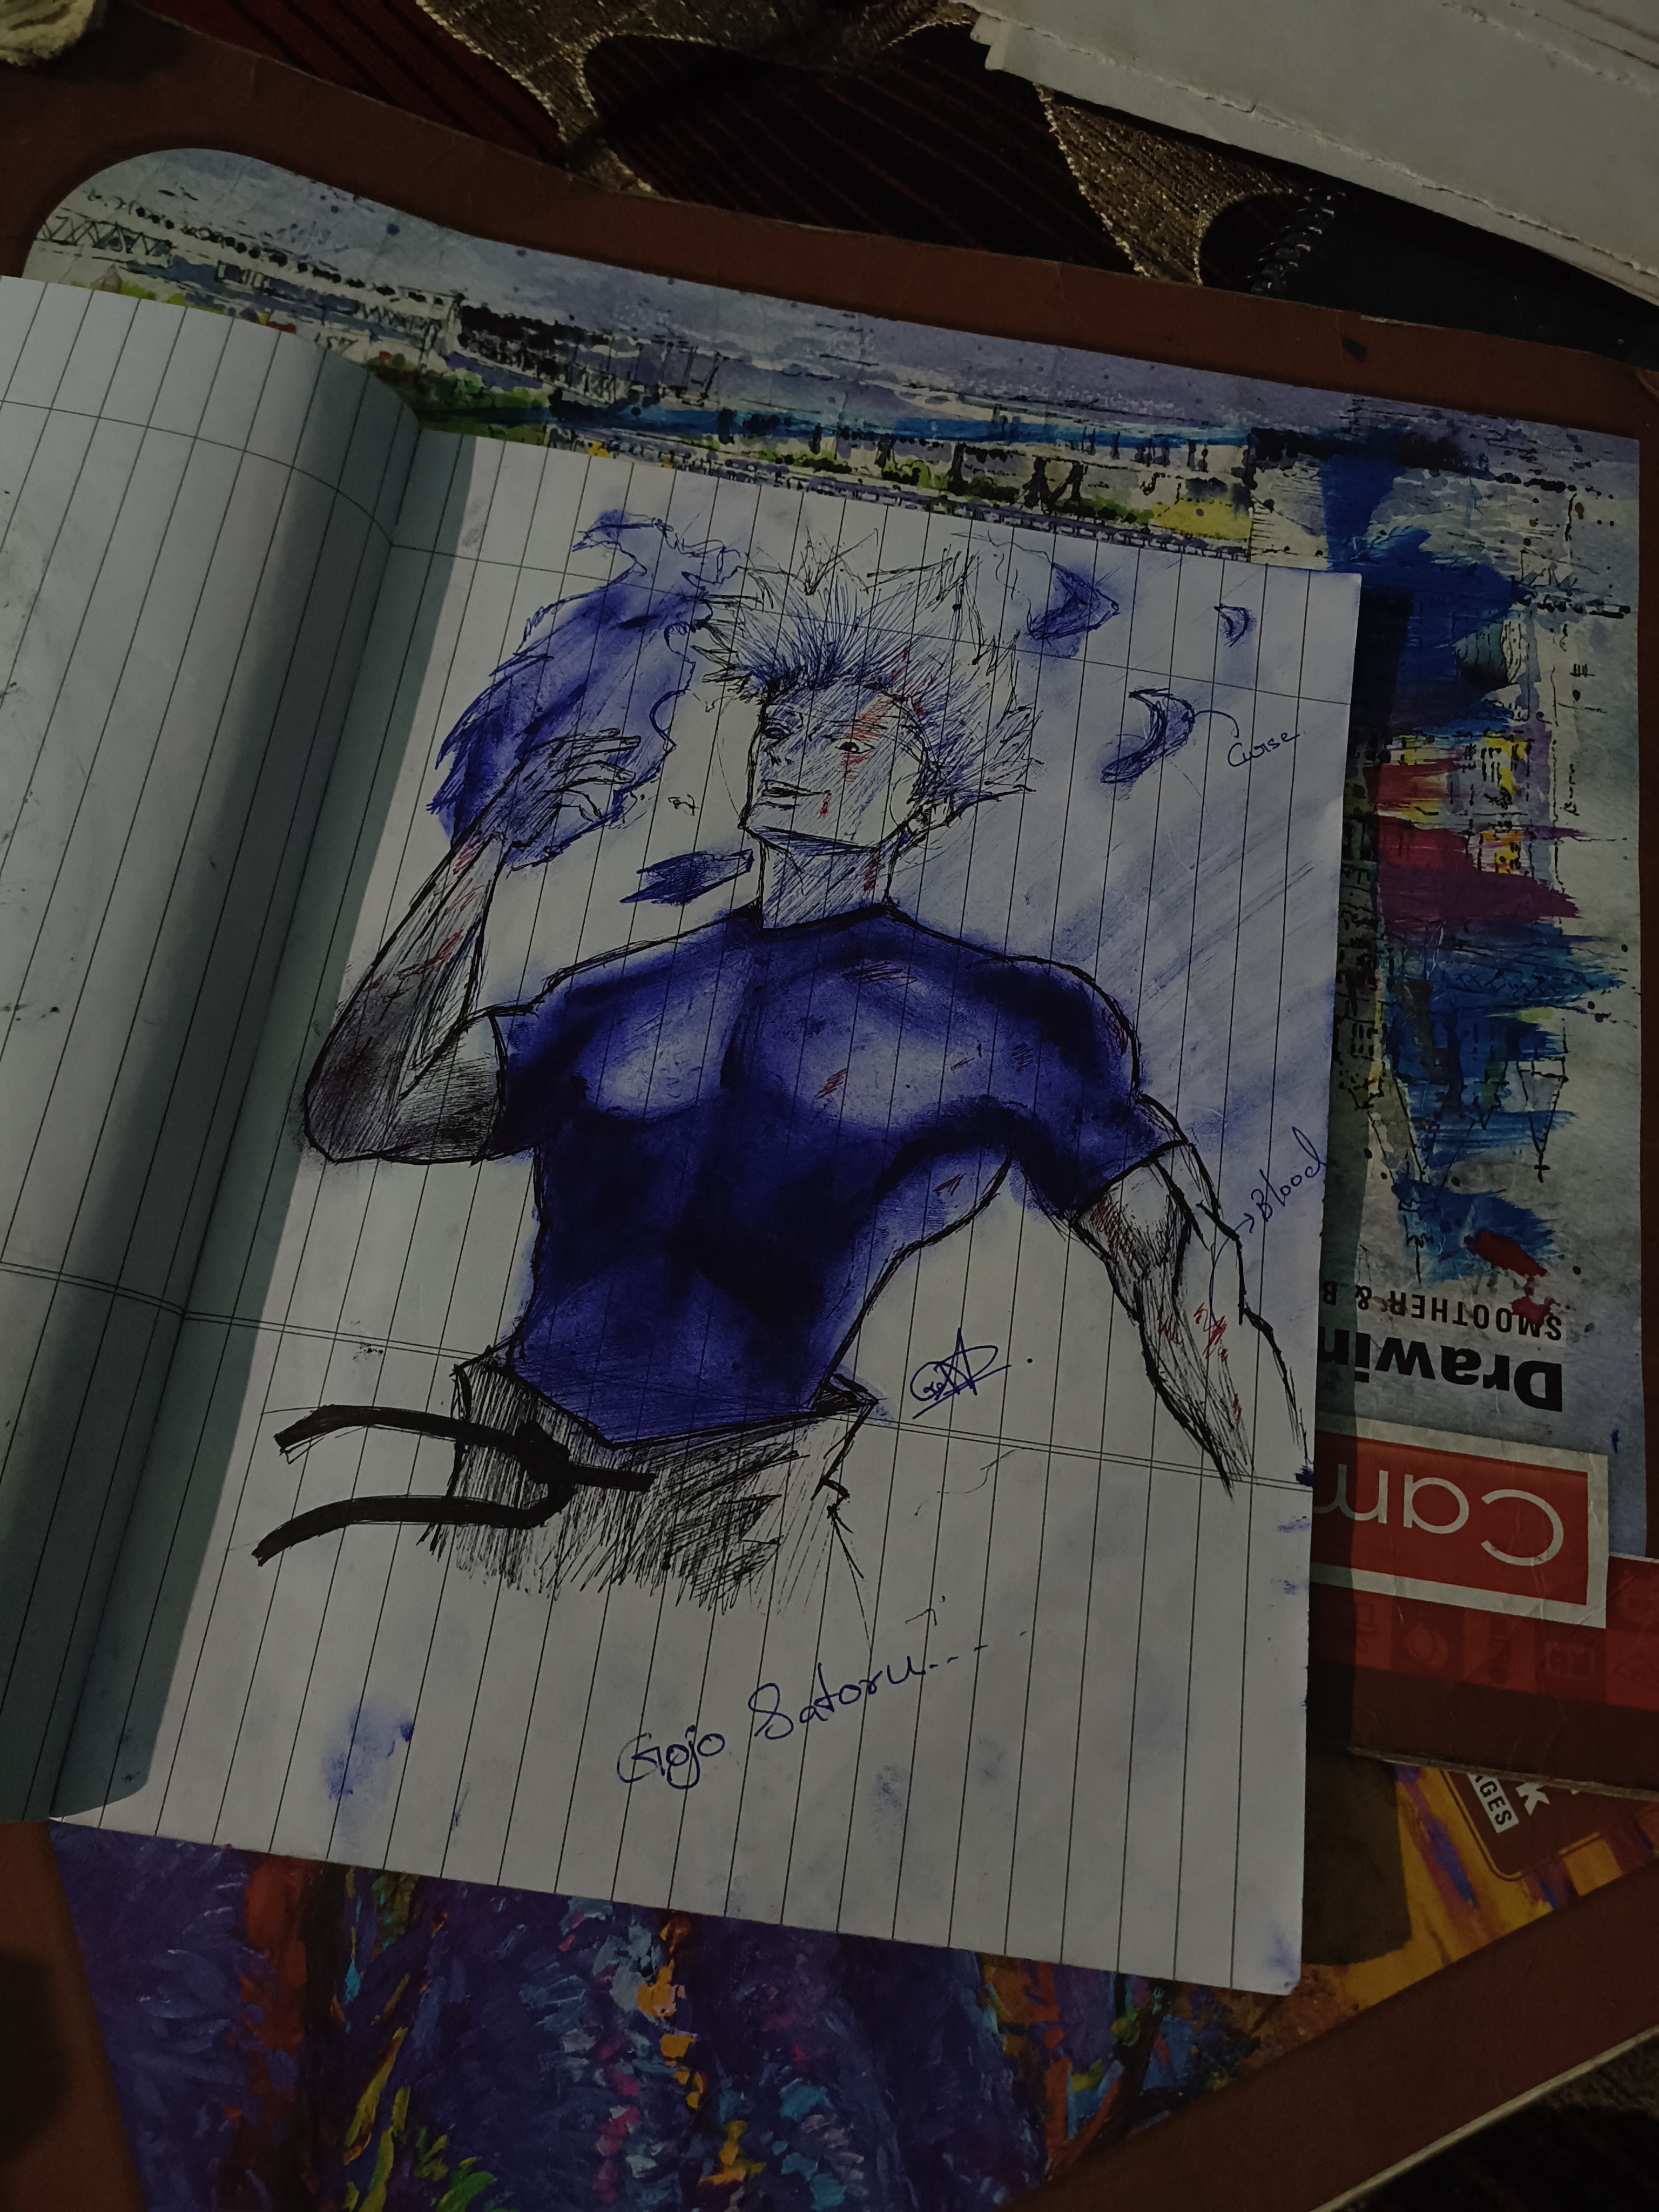 Curse
Blood
Gojo Satoru...
Drawin
SMOOTHER & B
Cam
AGES